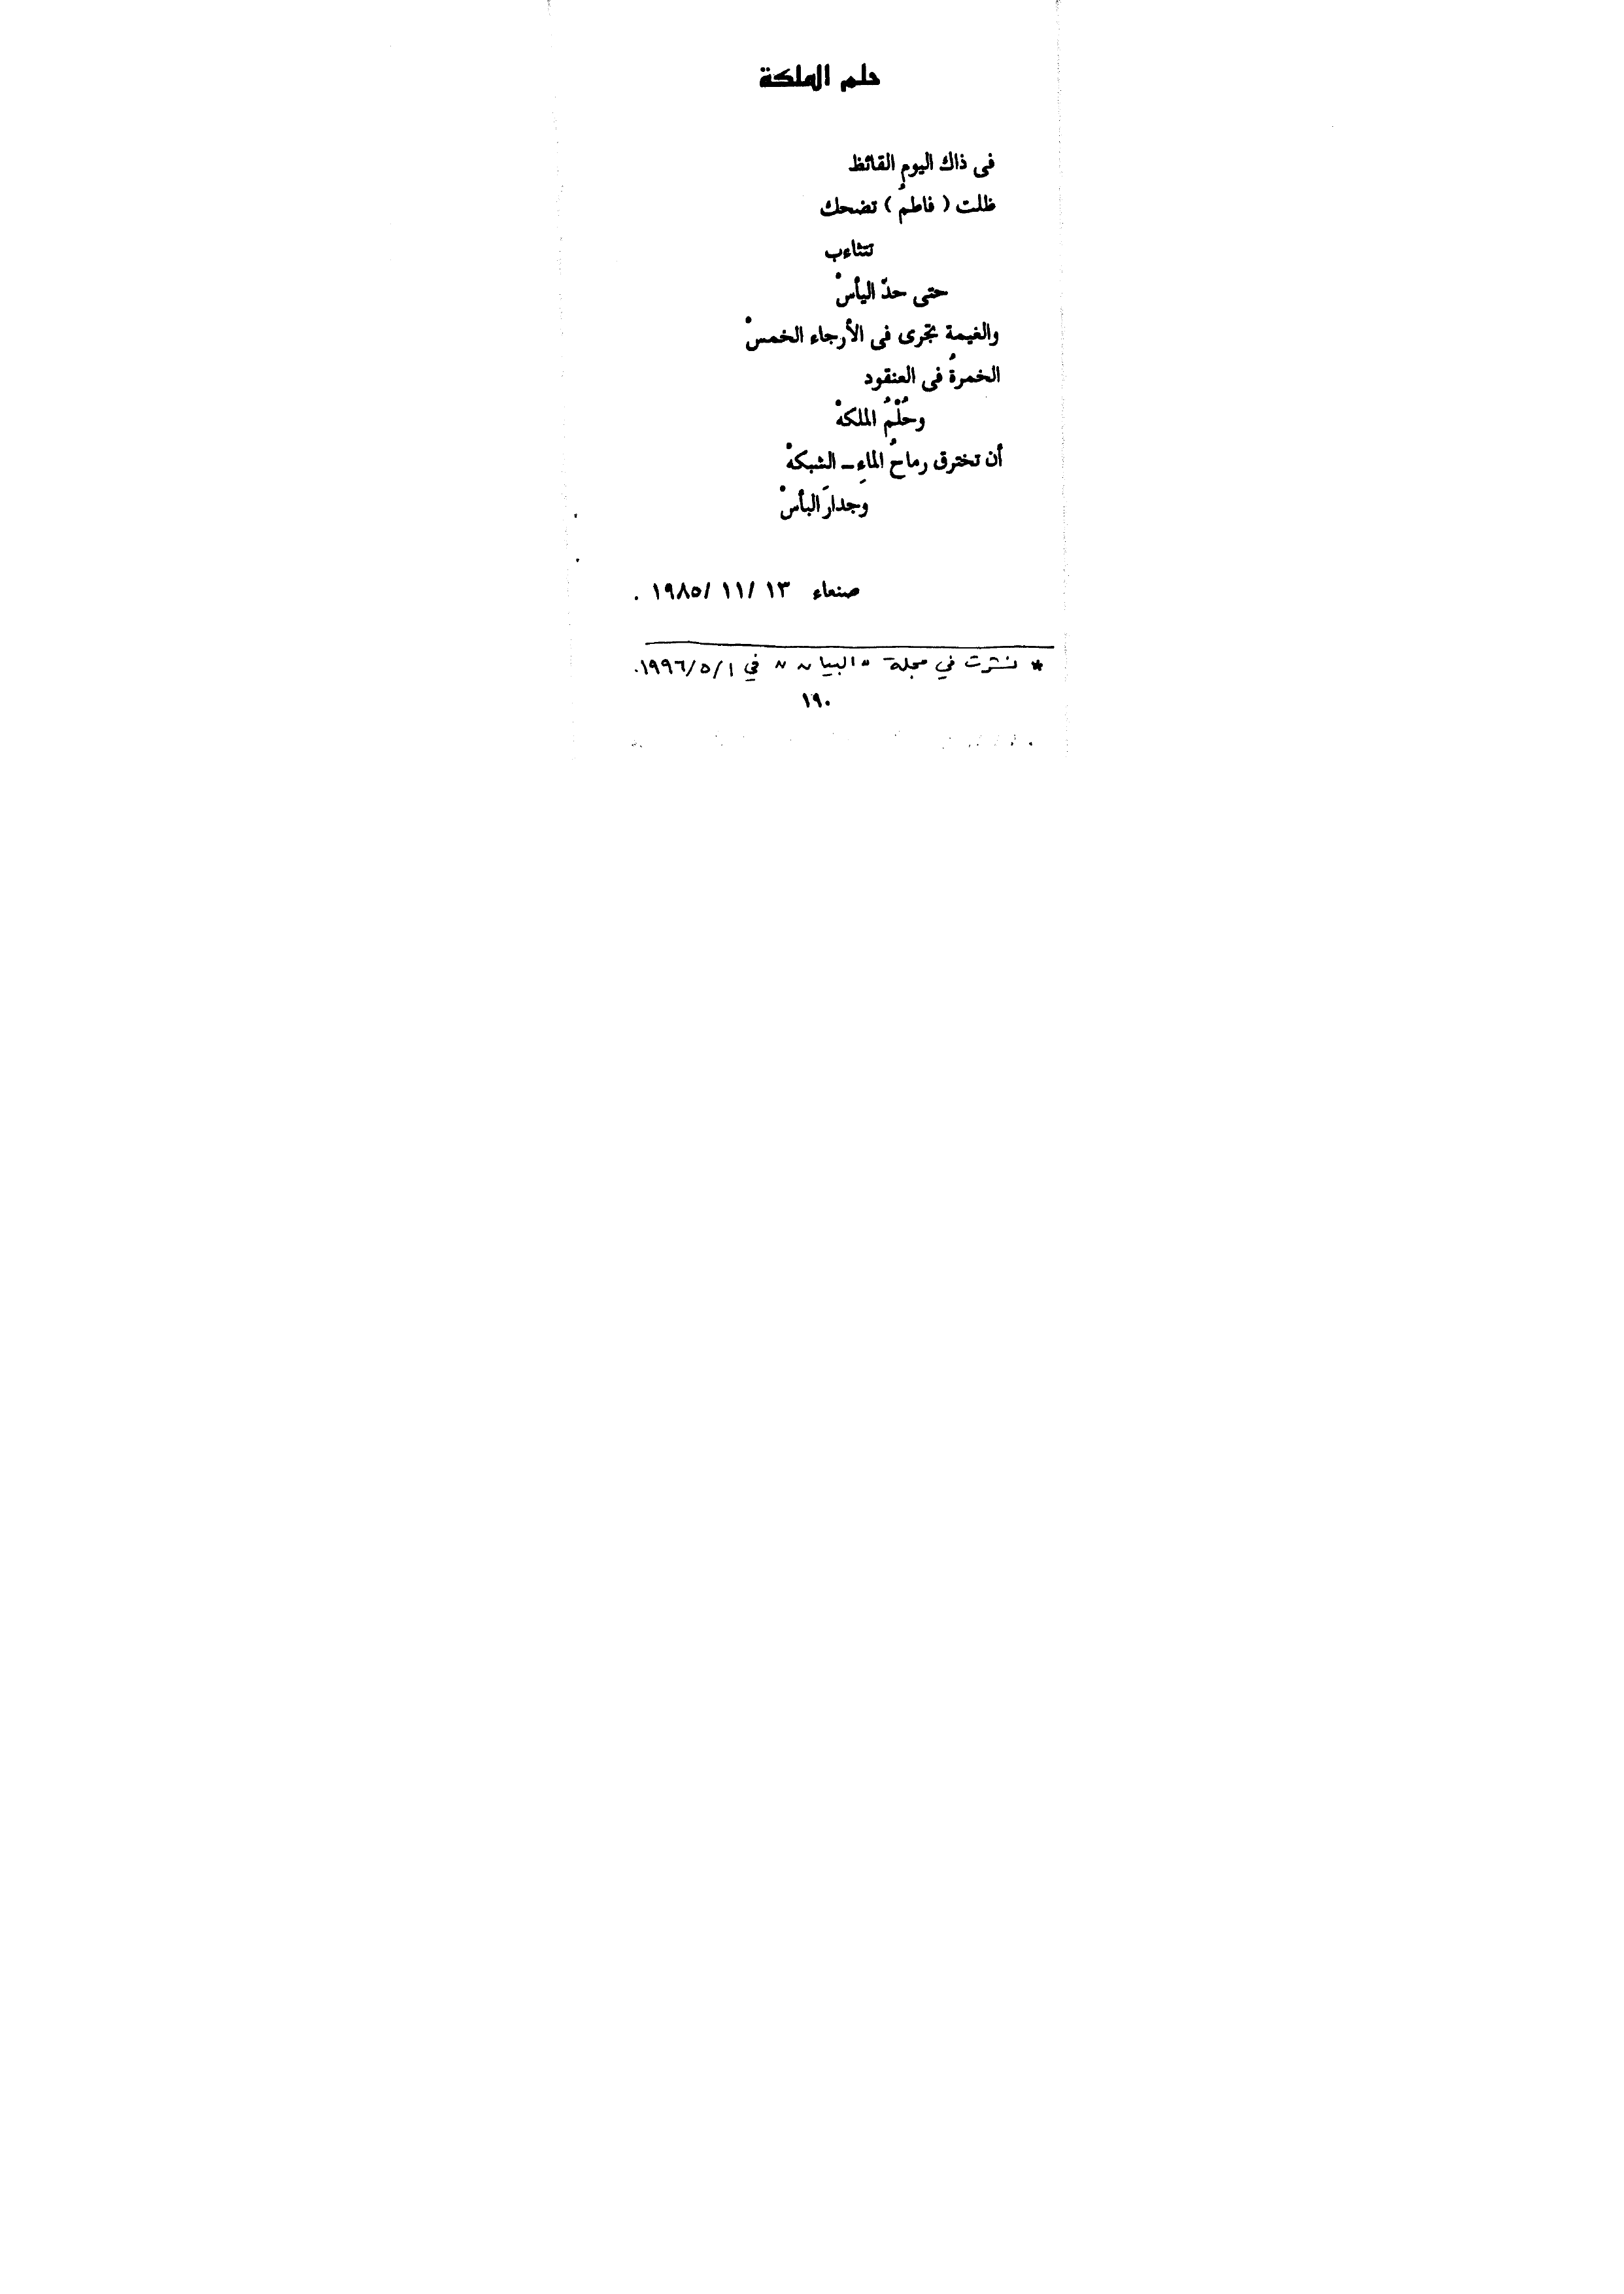 حلم الملكة
فى ذاك اليوم القائظ
ظلت ( فاطمُ ) تضحك
تتثاءب
حتى حدّ اليأسْ
والغيمة تجرى فى الأرجاء الخمسْ
الخمرةُ فى العنقود
وحُلْمُ الملكهْ
أن تخترق رماحُ الماءِ ـ الشبكهْ
وَجدارَ البأسْ
صنعاء ١٣ /١١ /١٩٨٥ .
* نشرت في مجلة " البيان " في ١٩٩٦/٥/١.
١٩٠